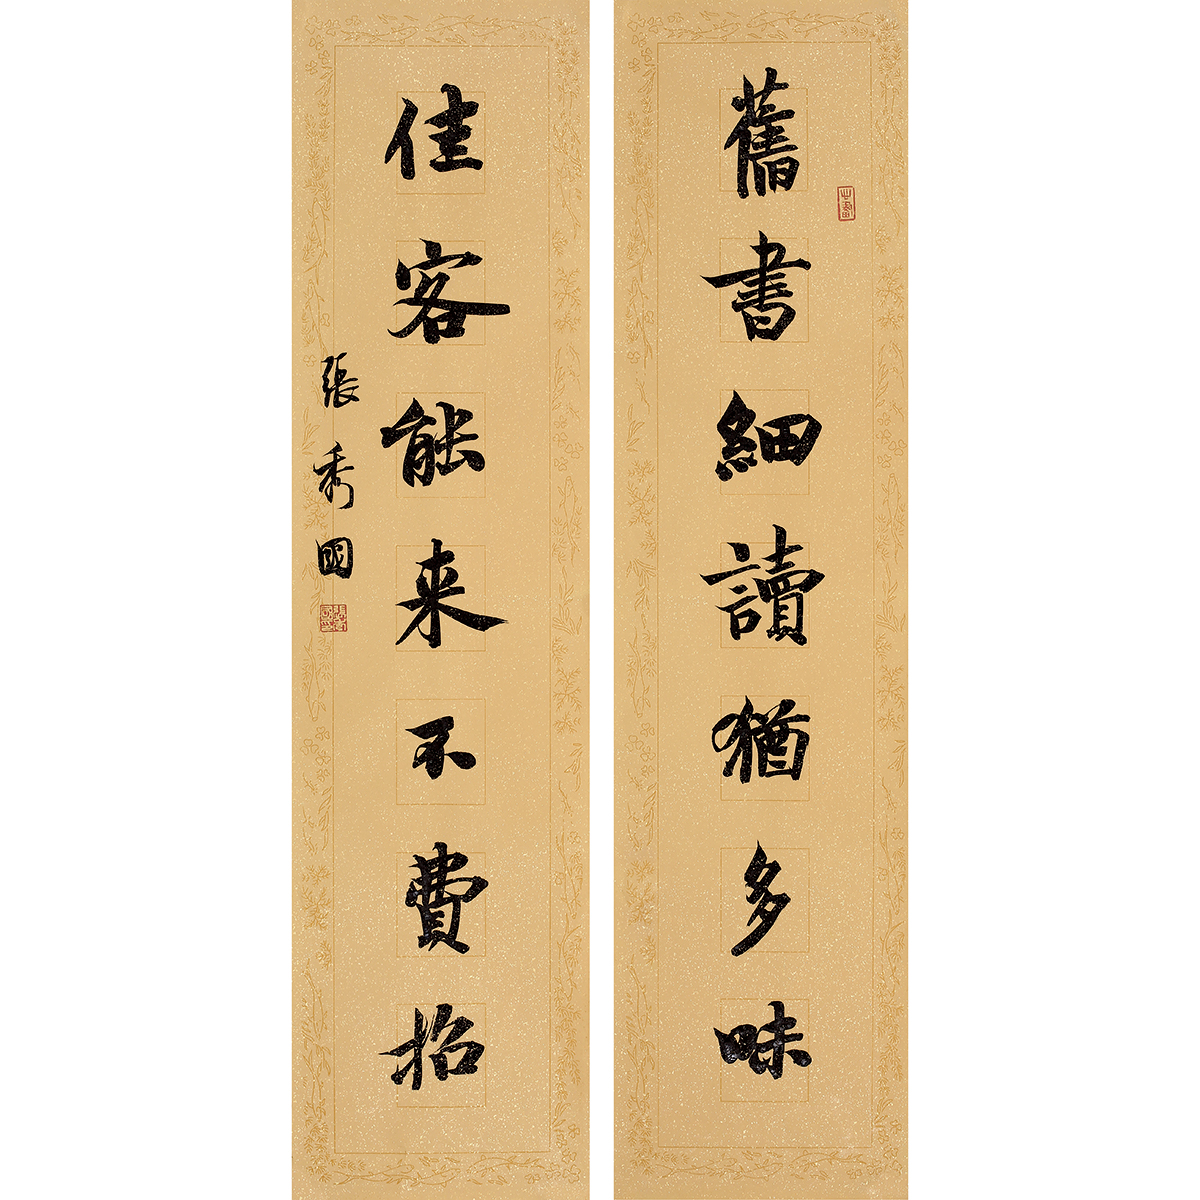 舊書細讀猶多味
佳客能来不費招
張秀國